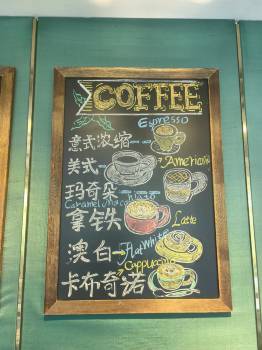 COFFEE
Espresso
意式浓缩
美式 Americano
玛奇朵
Caramel Macchiato
拿铁 Latte
澳白 Flat White
Cappuccino
卡布奇诺